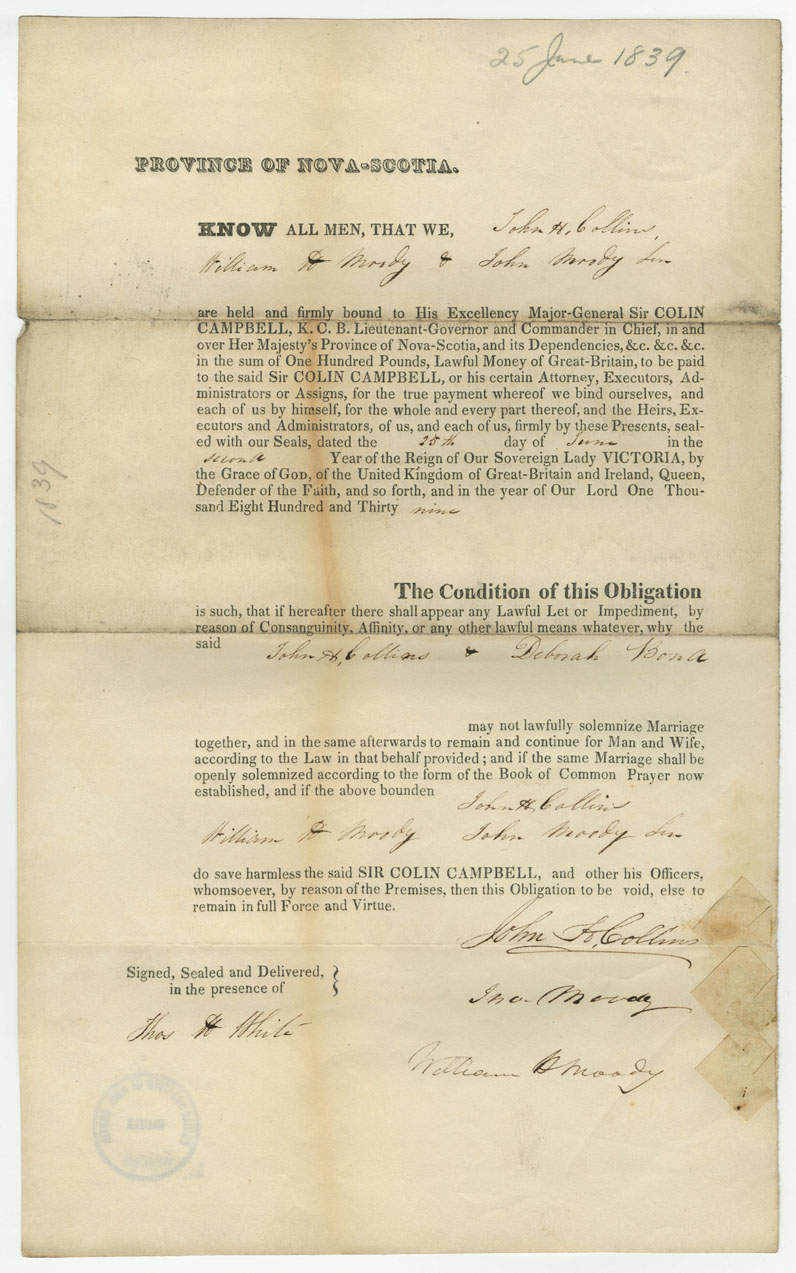 25 June 1839.
PROVINCE OF NOVA-SCOTIA.
KNOW ALL MEN, THAT WE, John H. Collins,
William H Moody & John Moody Sen
are held and firmly bound to His Excellency Major-General Sir COLIN
CAMPBELL, K. C. B. Lieutenant-Governor and Commander in Chief, in and
over Her Majesty's Province of Nova-Scotia, and its Dependencies, &c. &c. &c.
in the sum of One Hundred Pounds, Lawful Money of Great-Britain, to be paid
to the said Sir COLIN CAMPBELL, or his certain Attorney, Executors, Ad-
ministrators or Assigns, for the true payment whereof we bind ourselves, and
each of us by himself, for the whole and every part thereof, and the Heirs, Ex-
ecutors and Administrators, of us, and each of us, firmly by these Presents, seal-
ed with our Seals, dated the 25th day of June in the
second Year of the Reign of Our Sovereign Lady VICTORIA, by
the Grace of GOD, of the United Kingdom of Great-Britain and Ireland, Queen,
Defender of the Faith, and so forth, and in the year of Our Lord One Thou-
sand Eight Hundred and Thirty nine
1839
The Condition of this Obligation
is such, that if hereafter there shall appear any Lawful Let or Impediment, by
reason of Consanguinity, Affinity, or any other lawful means whatever, why the
said John H. Collins & Deborah Bond
may not lawfully solemnize Marriage
together, and in the same afterwards to remain and continue for Man and Wife,
according to the Law in that behalf provided; and if the same Marriage shall be
openly solemnized according to the form of the Book of Common Prayer now
established, and if the above bounden John H. Collins
William H Moody John Moody Sen
do save harmless the said SIR COLIN CAMPBELL, and other his Officers,
whomsoever, by reason of the Premises, then this Obligation to be void, else to
remain in full Force and Virtue.
John H. Collins
Signed, Sealed and Delivered,
in the presence of
Jno. Moody
Thos H White
William H Moody